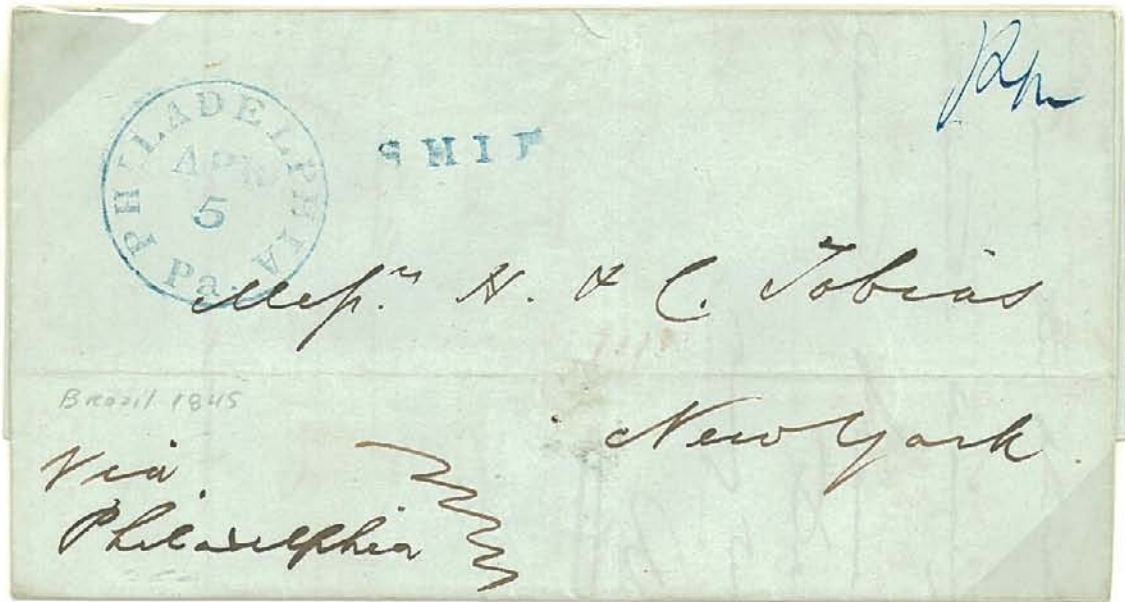 PHILADELPHIA Pa.
APR
5
SHIP
Mess.rs H. & C. Tobias
New York.
Brazil 1845
Via
Philadelphia